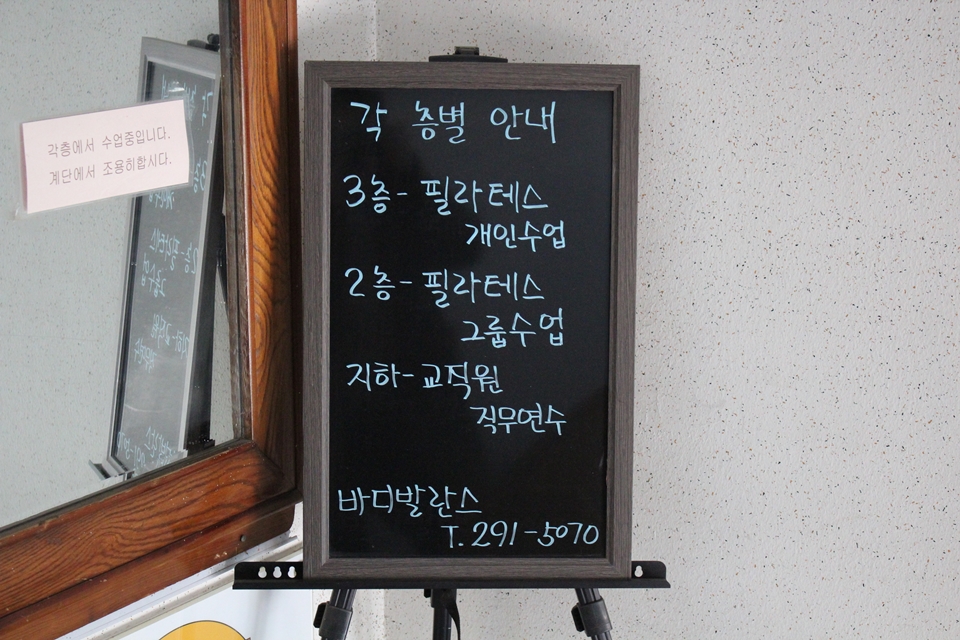 각층에서 수업중입니다.
계단에서 조용히합시다.
각 층별 안내
3층-필라테스
개인수업
2층-필라테스
그룹수업
지하-교직원
직무연수
바디발란스
T. 291-5070